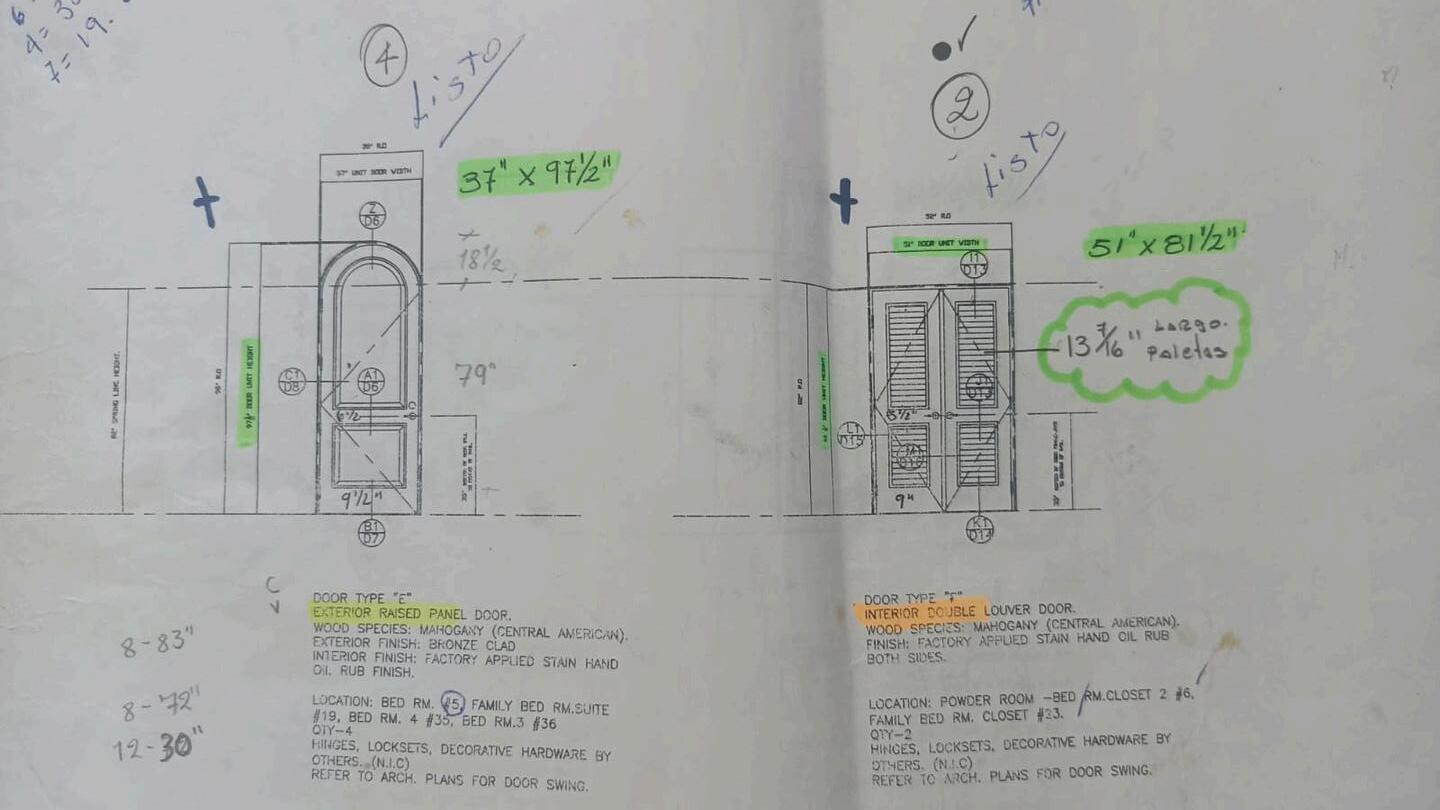 6
4=
7=19.
4
Listo
38" R.O
37" UNIT DOOR WIDTH
37" X 97 1/2"
Z
D6
18 1/2
79"
82" SPRING LINE HEIGHT.
98" R.O
97 1/2" DOOR UNIT HEIGHT
C1
D8
A1
D6
9 1/2"
B1
D7
✓
2
Listo
52" R.O
51" DOOR UNIT WIDTH
51" X 81 1/2"
I1
D13
13 7/16" LARGO.
Paletas
82" R.O
DOOR UNIT HEIGHT
5 1/2"
L1
D15
9"
K1
D14
C
V
8-83"
8-72"
12-30"
DOOR TYPE "E"
EXTERIOR RAISED PANEL DOOR.
WOOD SPECIES: MAHOGANY (CENTRAL AMERICAN).
EXTERIOR FINISH: BRONZE CLAD
INTERIOR FINISH: FACTORY APPLIED STAIN HAND
OIL RUB FINISH.
LOCATION: BED RM. #5, FAMILY BED RM.SUITE
#19, BED RM. 4 #35, BED RM.3 #36
QTY-4
HINGES, LOCKSETS, DECORATIVE HARDWARE BY
OTHERS. (N.I.C)
REFER TO ARCH. PLANS FOR DOOR SWING.
DOOR TYPE "F"
INTERIOR DOUBLE LOUVER DOOR.
WOOD SPECIES: MAHOGANY (CENTRAL AMERICAN).
FINISH: FACTORY APPLIED STAIN HAND OIL RUB
BOTH SIDES.
LOCATION: POWDER ROOM -BED RM.CLOSET 2 #6,
FAMILY BED RM. CLOSET #23.
QTY-2
HINGES, LOCKSETS, DECORATIVE HARDWARE BY
OTHERS. (N.I.C)
REFER TO ARCH. PLANS FOR DOOR SWING.